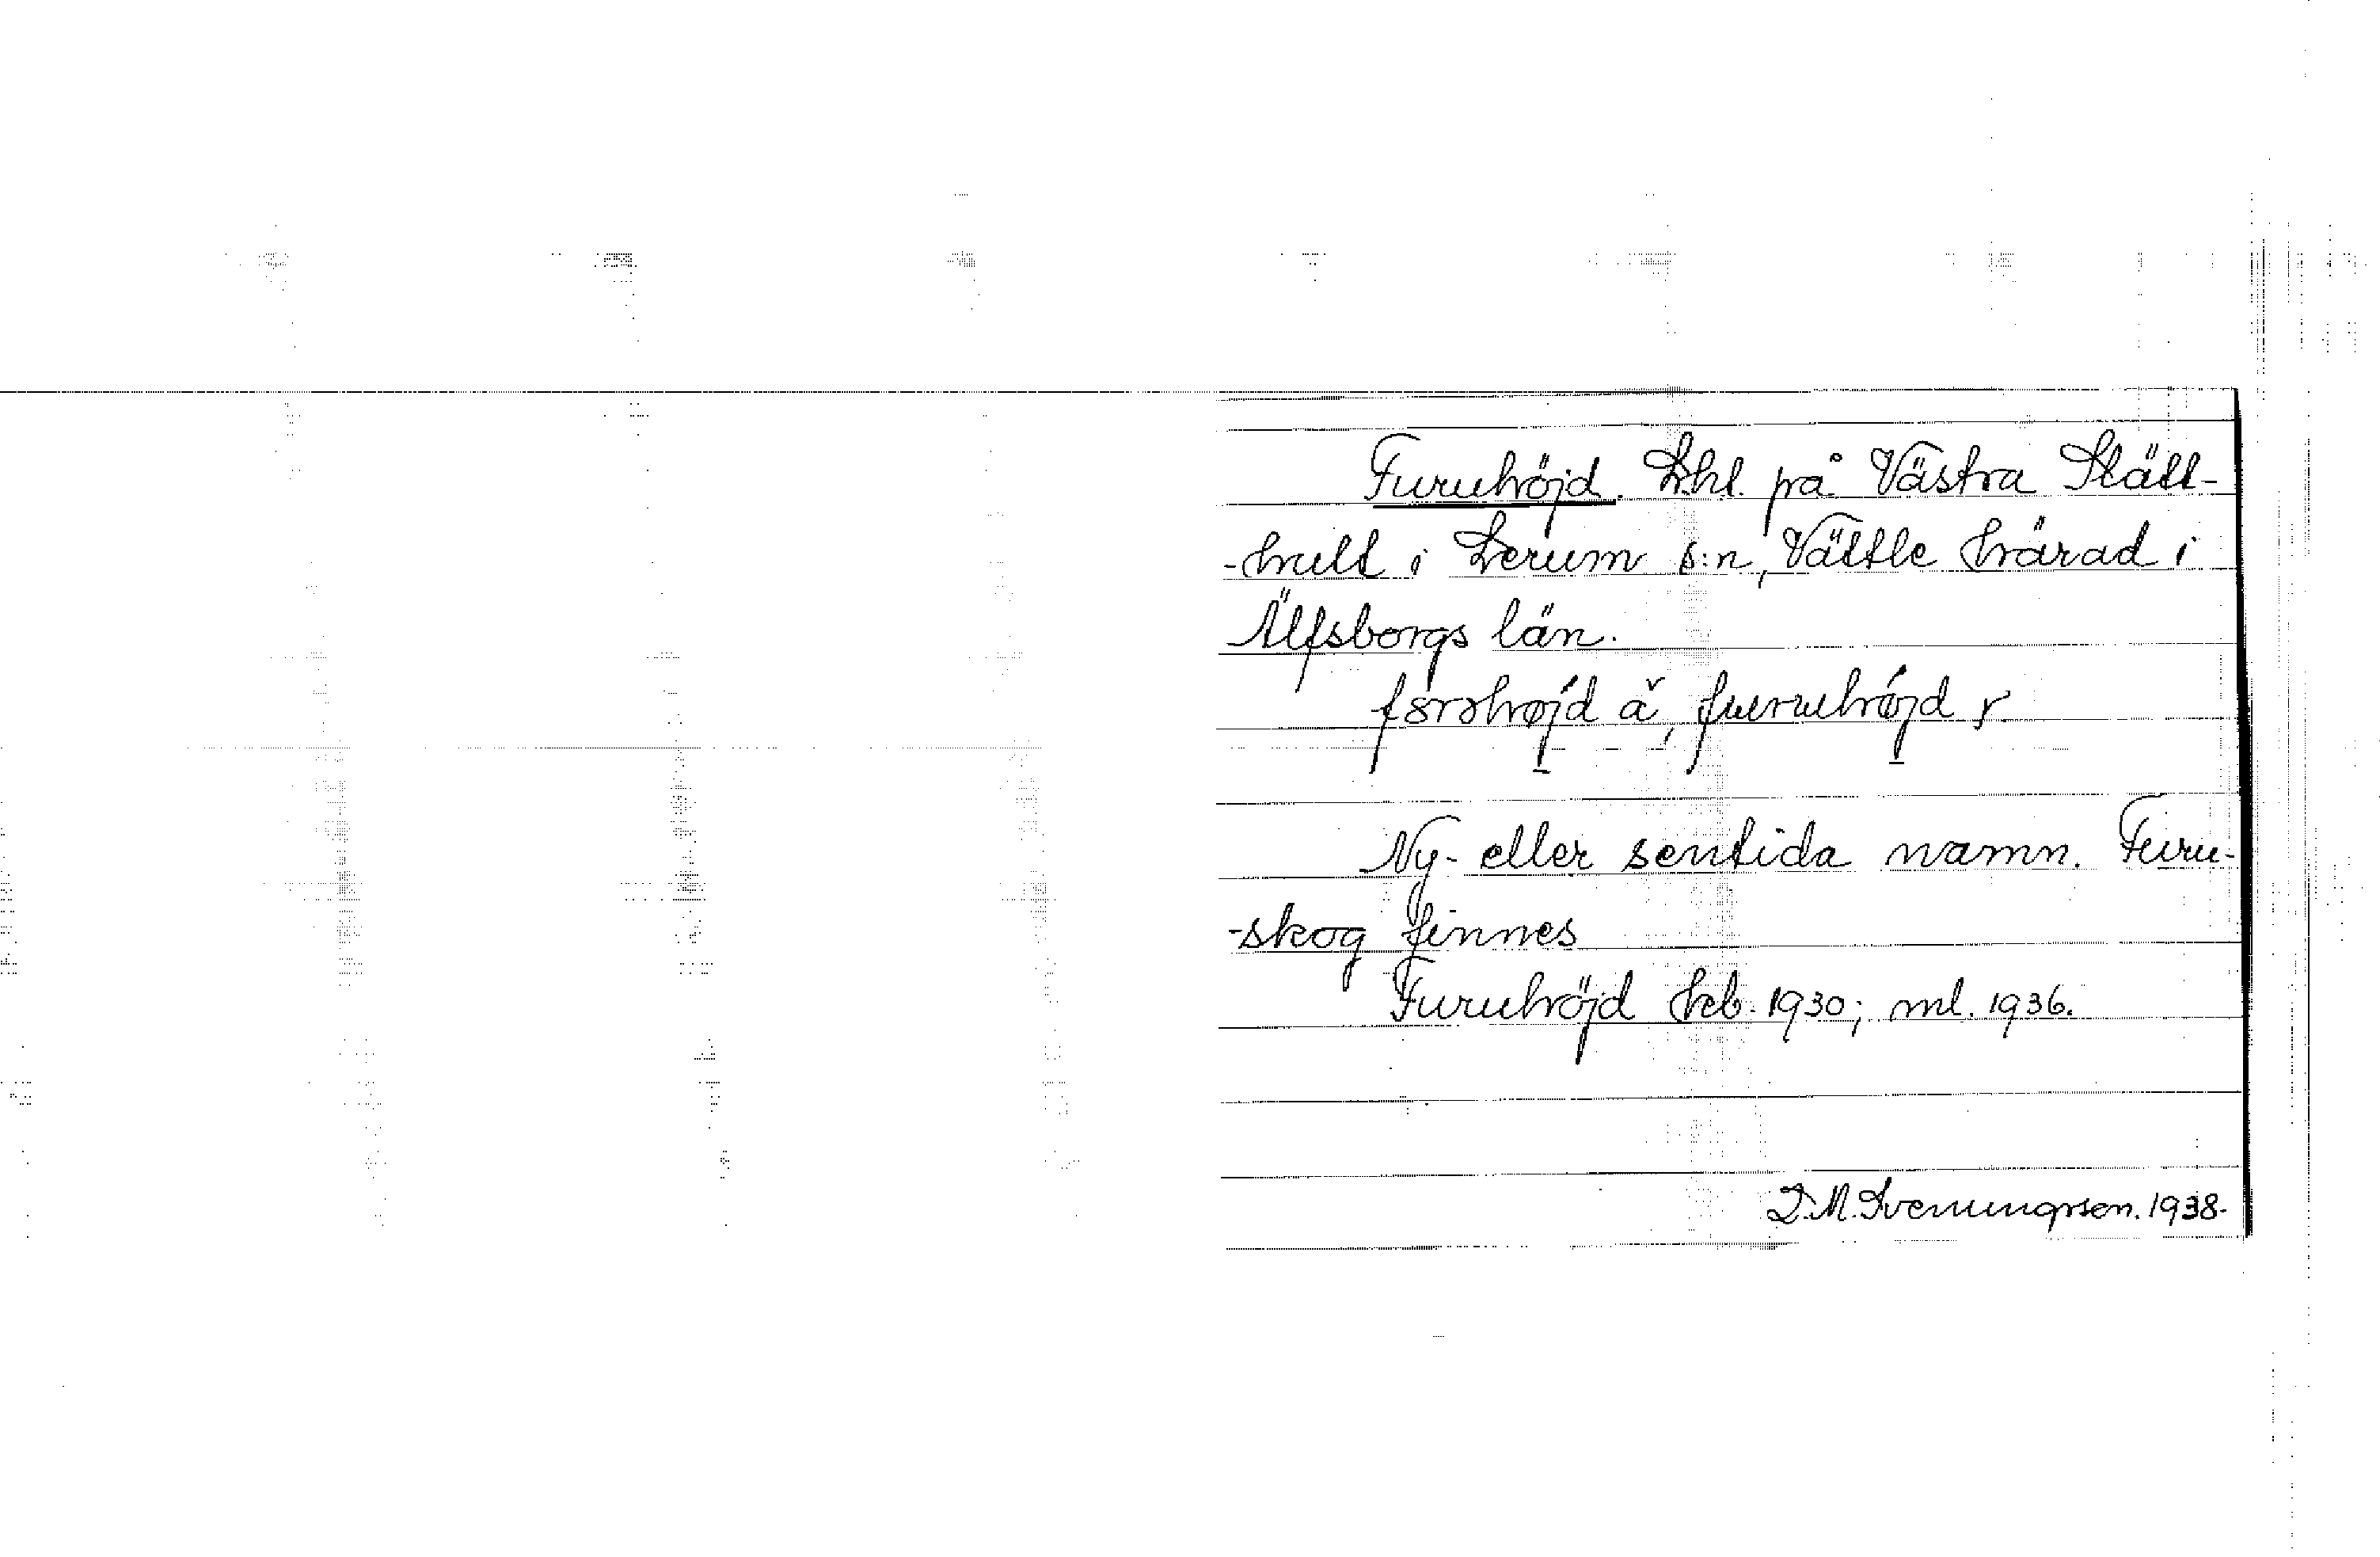 Furuhöjd. Lhl. på Västra Slätt-
-hult i Lerum s:n, Vättle härad i
Älfsborgs län.
fɷrɷhøjd ă, furuhøjd r.
Ny- eller sentida namn. Furu-
-skog finnes
Furuhöjd hcb. 1930; ml. 1936.
D.M. Svenungsson. 1938.